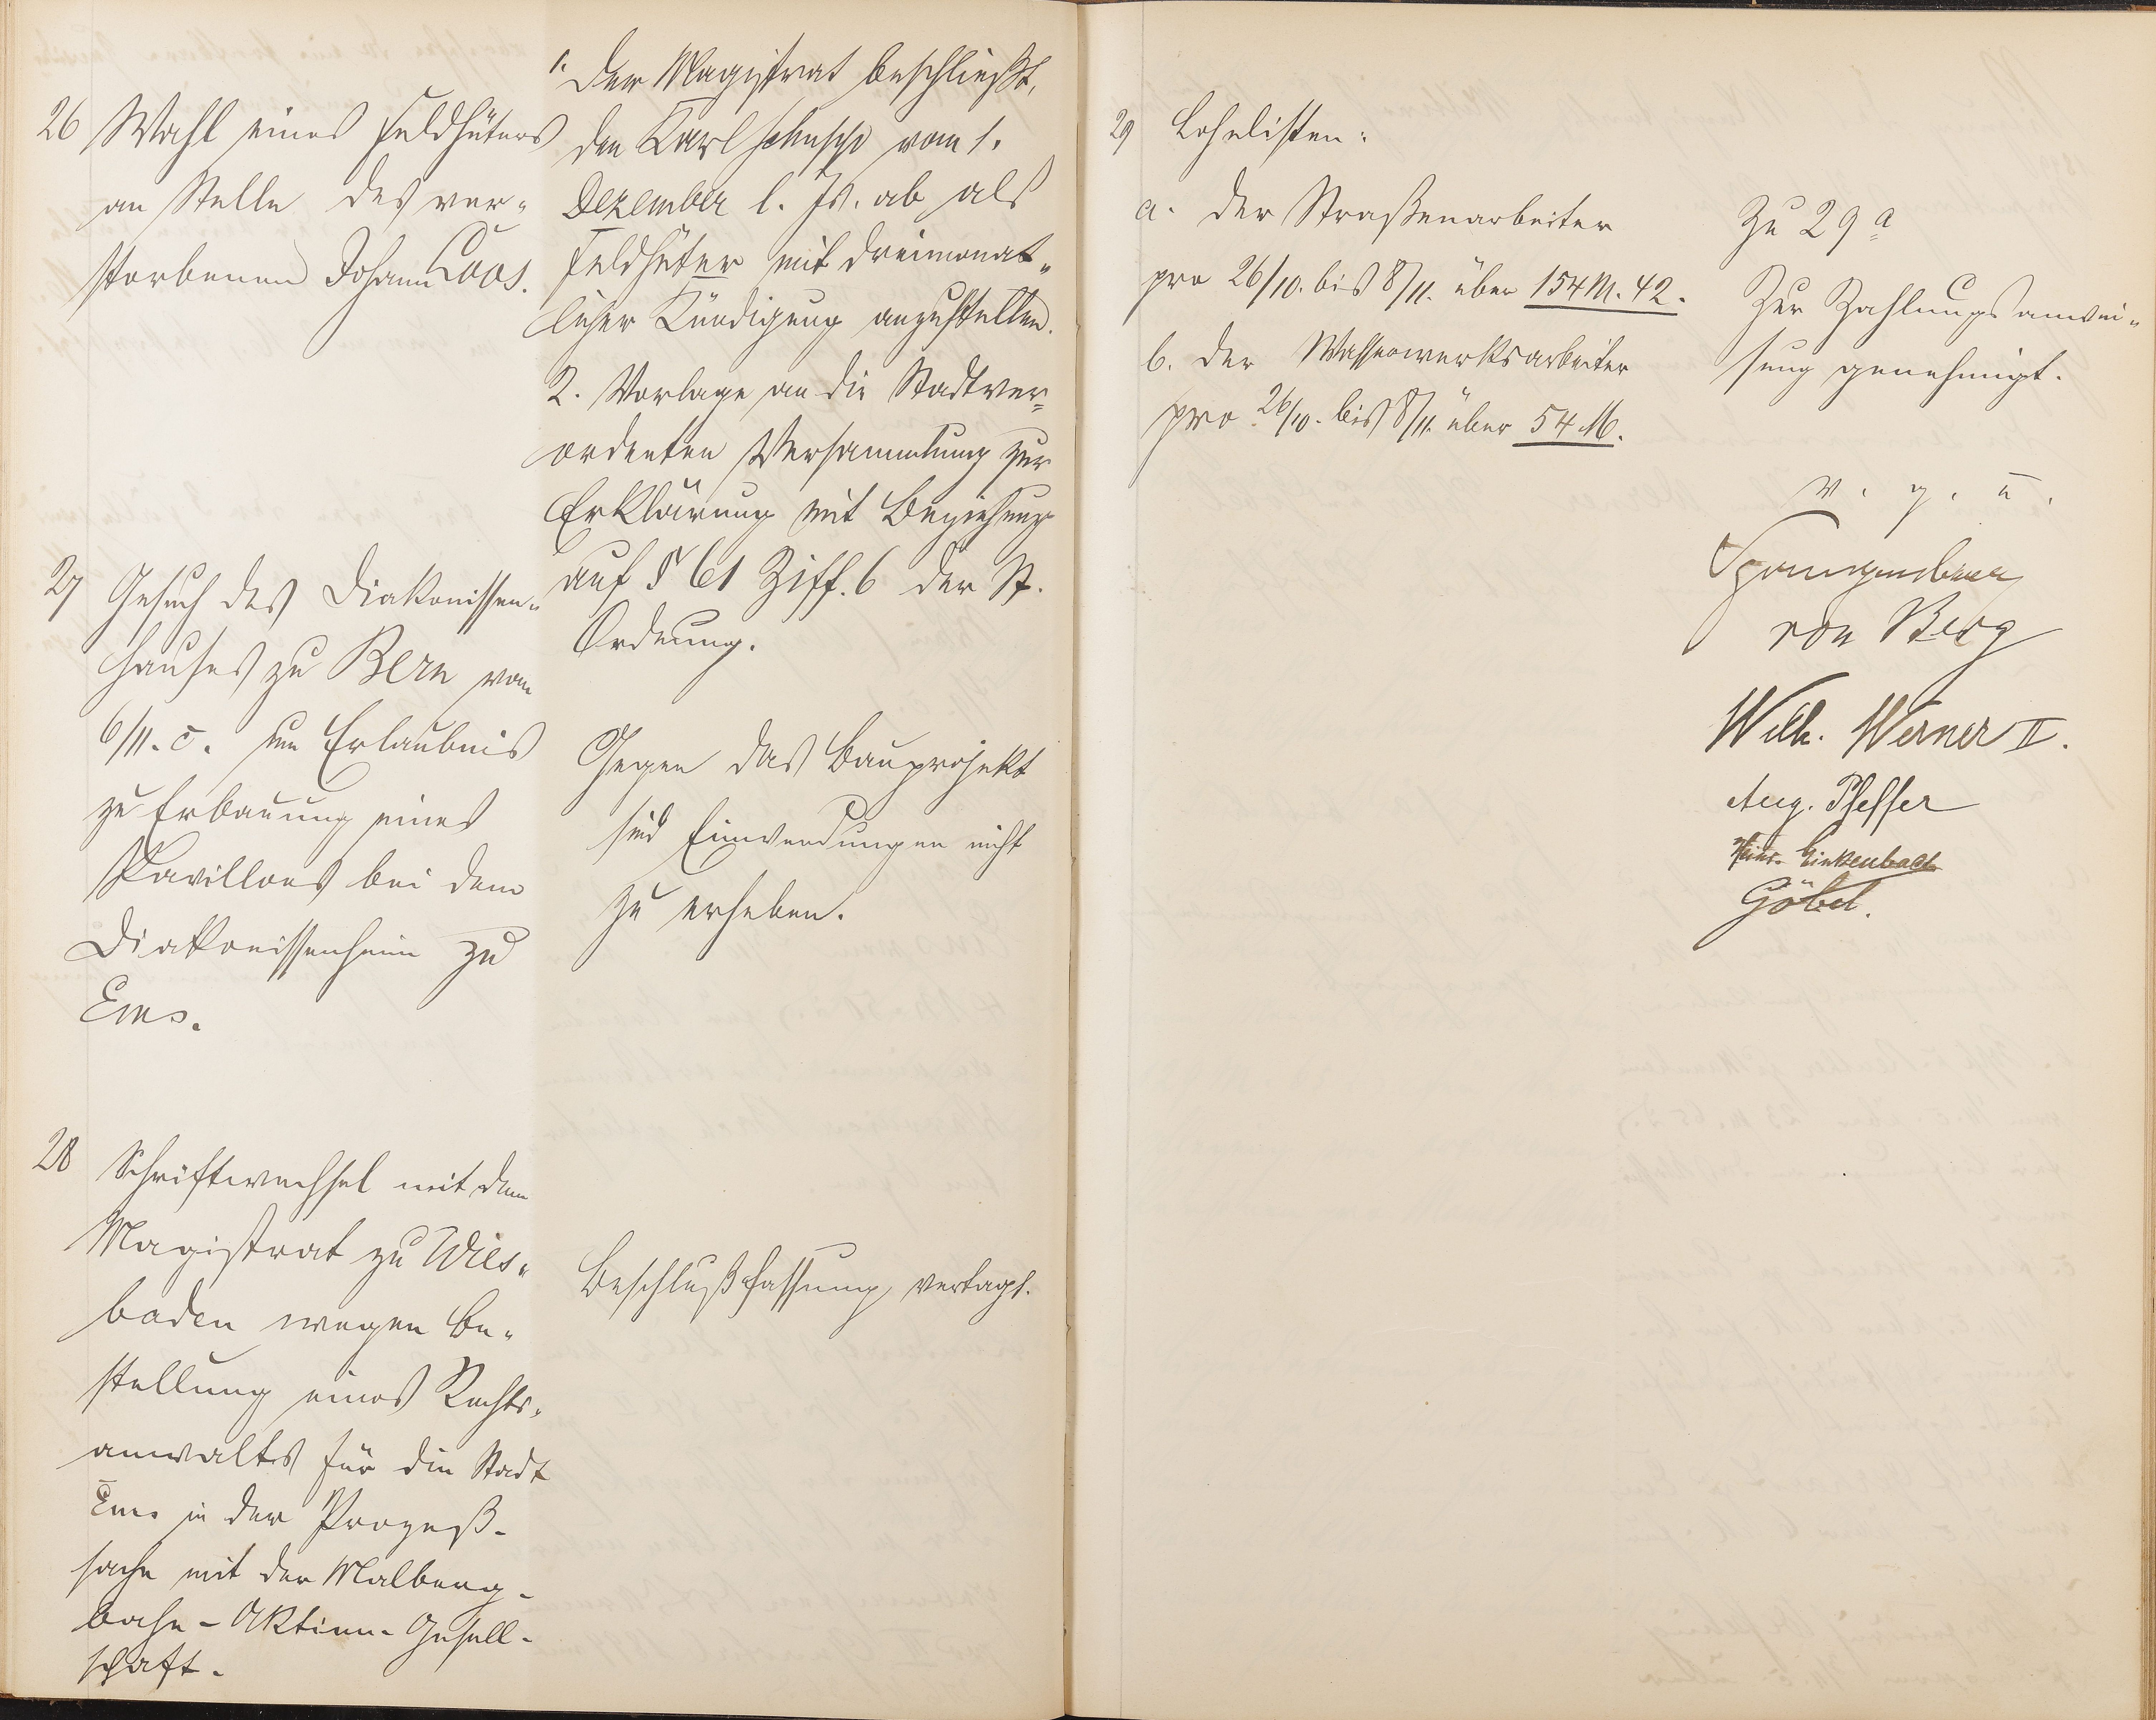 26 Wahl eines Feldhüters
an Stelle des ver-
storbenen Johann Loos.
1. Der Magistrat beschließt,
den Karl vom 1.
Dezember l. Js. ab als
Feldhüter mit dreimonat-
licher Kündigung anzustellen.
2. Vorlage an die Stadtver-
ordneten Versammlung zur
Erklärung mit Beziehung
auf § 61 Ziff. 6 der St.
Ordnung.
27 Gesuch des Diakonissen-
hauses zu Bern vom
6/11. c. um Erlaubnis
zu Erbauung eines
Pavillons bei dem
Diakonissenheim zu
Ems.
Gegen das Bauprojekt
sind Einwendungen nicht
zu erheben.
28 Schriftwechsel mit dem
Magistrat zu Wies-
baden wegen Be-
stellung eines Rechts-
anwaltes für die Stadt
Ems in der Prozeß-
sache mit der Malberg-
bahn-Aktien-Gesell-
schaft.
Beschlußfassung vertagt.
29 Lohnlisten:
a. der Straßenarbeiter
pro 26/10. bis 8/11. über 154 M. 42.
b. der Wasserwerksarbeiter
pro 26/10. bis 8/11. über 54 M.
Zu 29 a
Zur Zahlungsanwei-
sung genehmigt.
v. g. u.
Spangenberg
von Berg
Wilh. Werner II.
Aug. Pfeffer
Heinr. Linkenbach
Göbel.